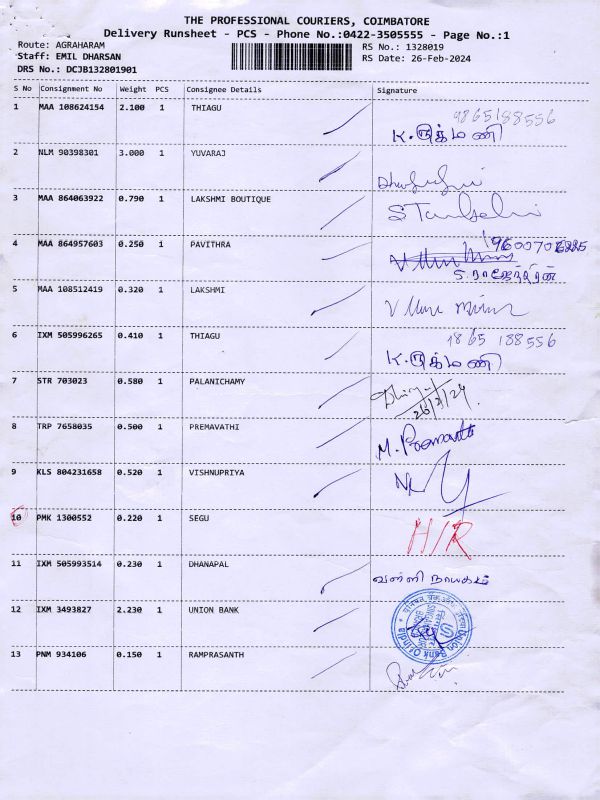 THE PROFESSIONAL COURIERS, COIMBATORE
Delivery Runsheet - PCS - Phone No.:0422-3505555 - Page No.:1
Route: AGRAHARAM
RS No.: 1328019
Staff: EMIL DHARSAN
RS Date: 26-Feb-2024
DRS No.: DCJB132801901
S No Consignment No Weight PCS Consignee Details Signature
1 MAA 108624154 2.100 1 THIAGU 9865188556
K. ருக்மணி
2 NLM 90398301 3.000 1 YUVARAJ
3 MAA 864063922 0.790 1 LAKSHMI BOUTIQUE
4 MAA 864957603 0.250 1 PAVITHRA
S. ராஜேந்திரன்
5 MAA 108512419 0.320 1 LAKSHMI
6 IXM 505996265 0.410 1 THIAGU 9865 188556
K. ருக்மணி
7 STR 703023 0.580 1 PALANICHAMY
26/2/24
8 TRP 7658035 0.500 1 PREMAVATHI M. Premavathi
9 KLS 804231658 0.520 1 VISHNUPRIYA
10 PMK 1300552 0.220 1 SEGU H/R
11 IXM 505993514 0.230 1 DHANAPAL வள்ளி நாயகம்
12 IXM 3493827 2.230 1 UNION BANK Union Bank Of India
13 PNM 934106 0.150 1 RAMPRASANTH